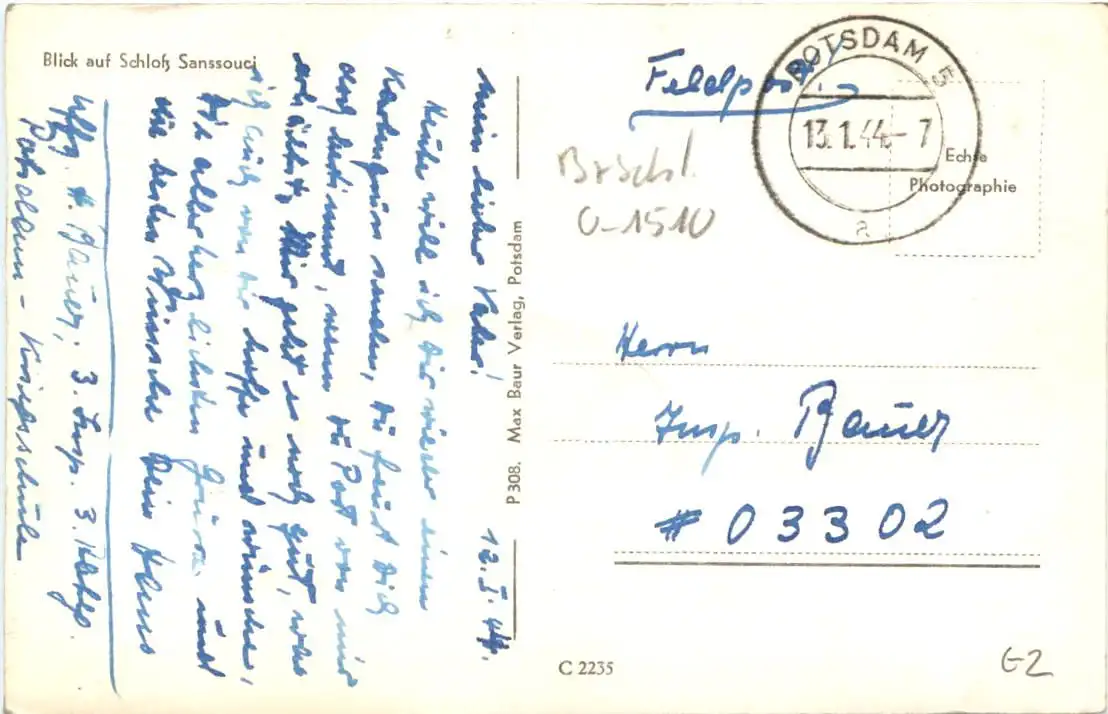 Blick auf Schloß Sanssouci
12.I.44.
Mein lieber Vater!
Heute will ich Dir wieder einen
Kartengruss senden, Du freust Dich
doch bestimmt, wenn Du Post von mir
erhältst. Mir geht es noch gut, was
ich auch von Dir hoffe und wünsche,
Die allerherzlichsten Grüsse und
die besten Wünsche Dein Hans
Uffz. H. Bauer, 3. Insp.
Potsdam - Kriegsschule
P 308. Max Baur Verlag, Potsdam
Feldpost!
POTSDAM 5
13.1.44.-7
a
Echte
Photographie
0-1510
Herrn
Insp. Bauer
# 03302
C 2235
G2